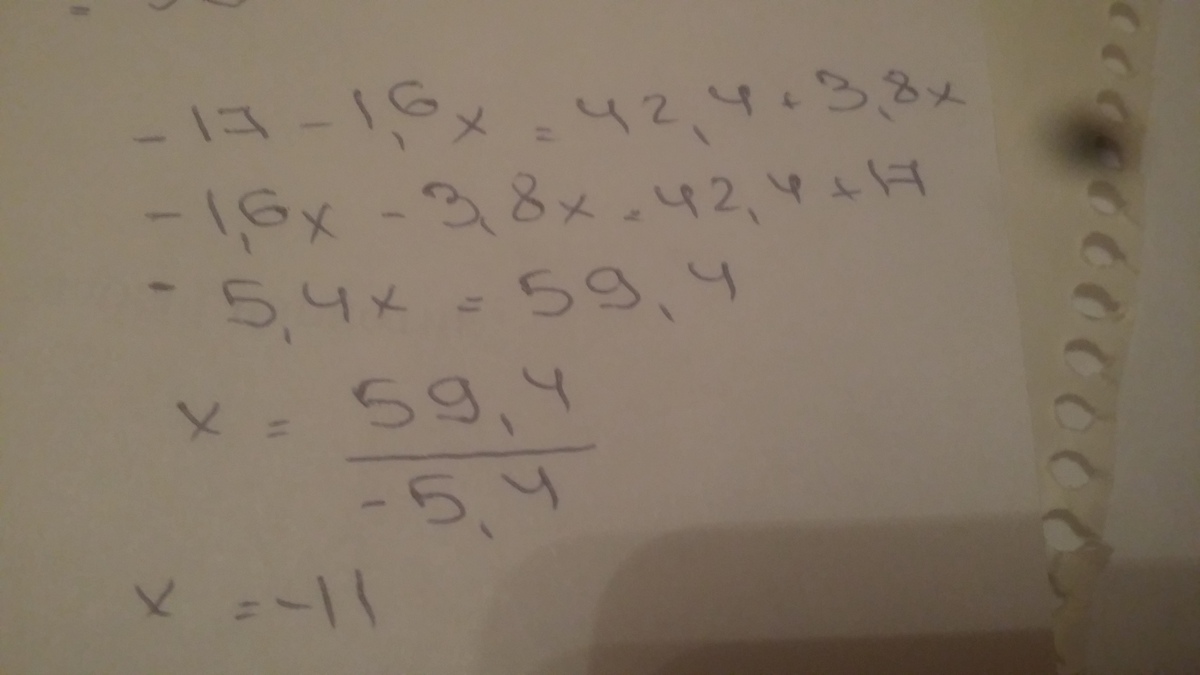 -17-1,6x=42,4+3,8x
-1,6x-3,8x=42,4+17
-5,4x=59,4
x=59,4/-5,4
x=-11